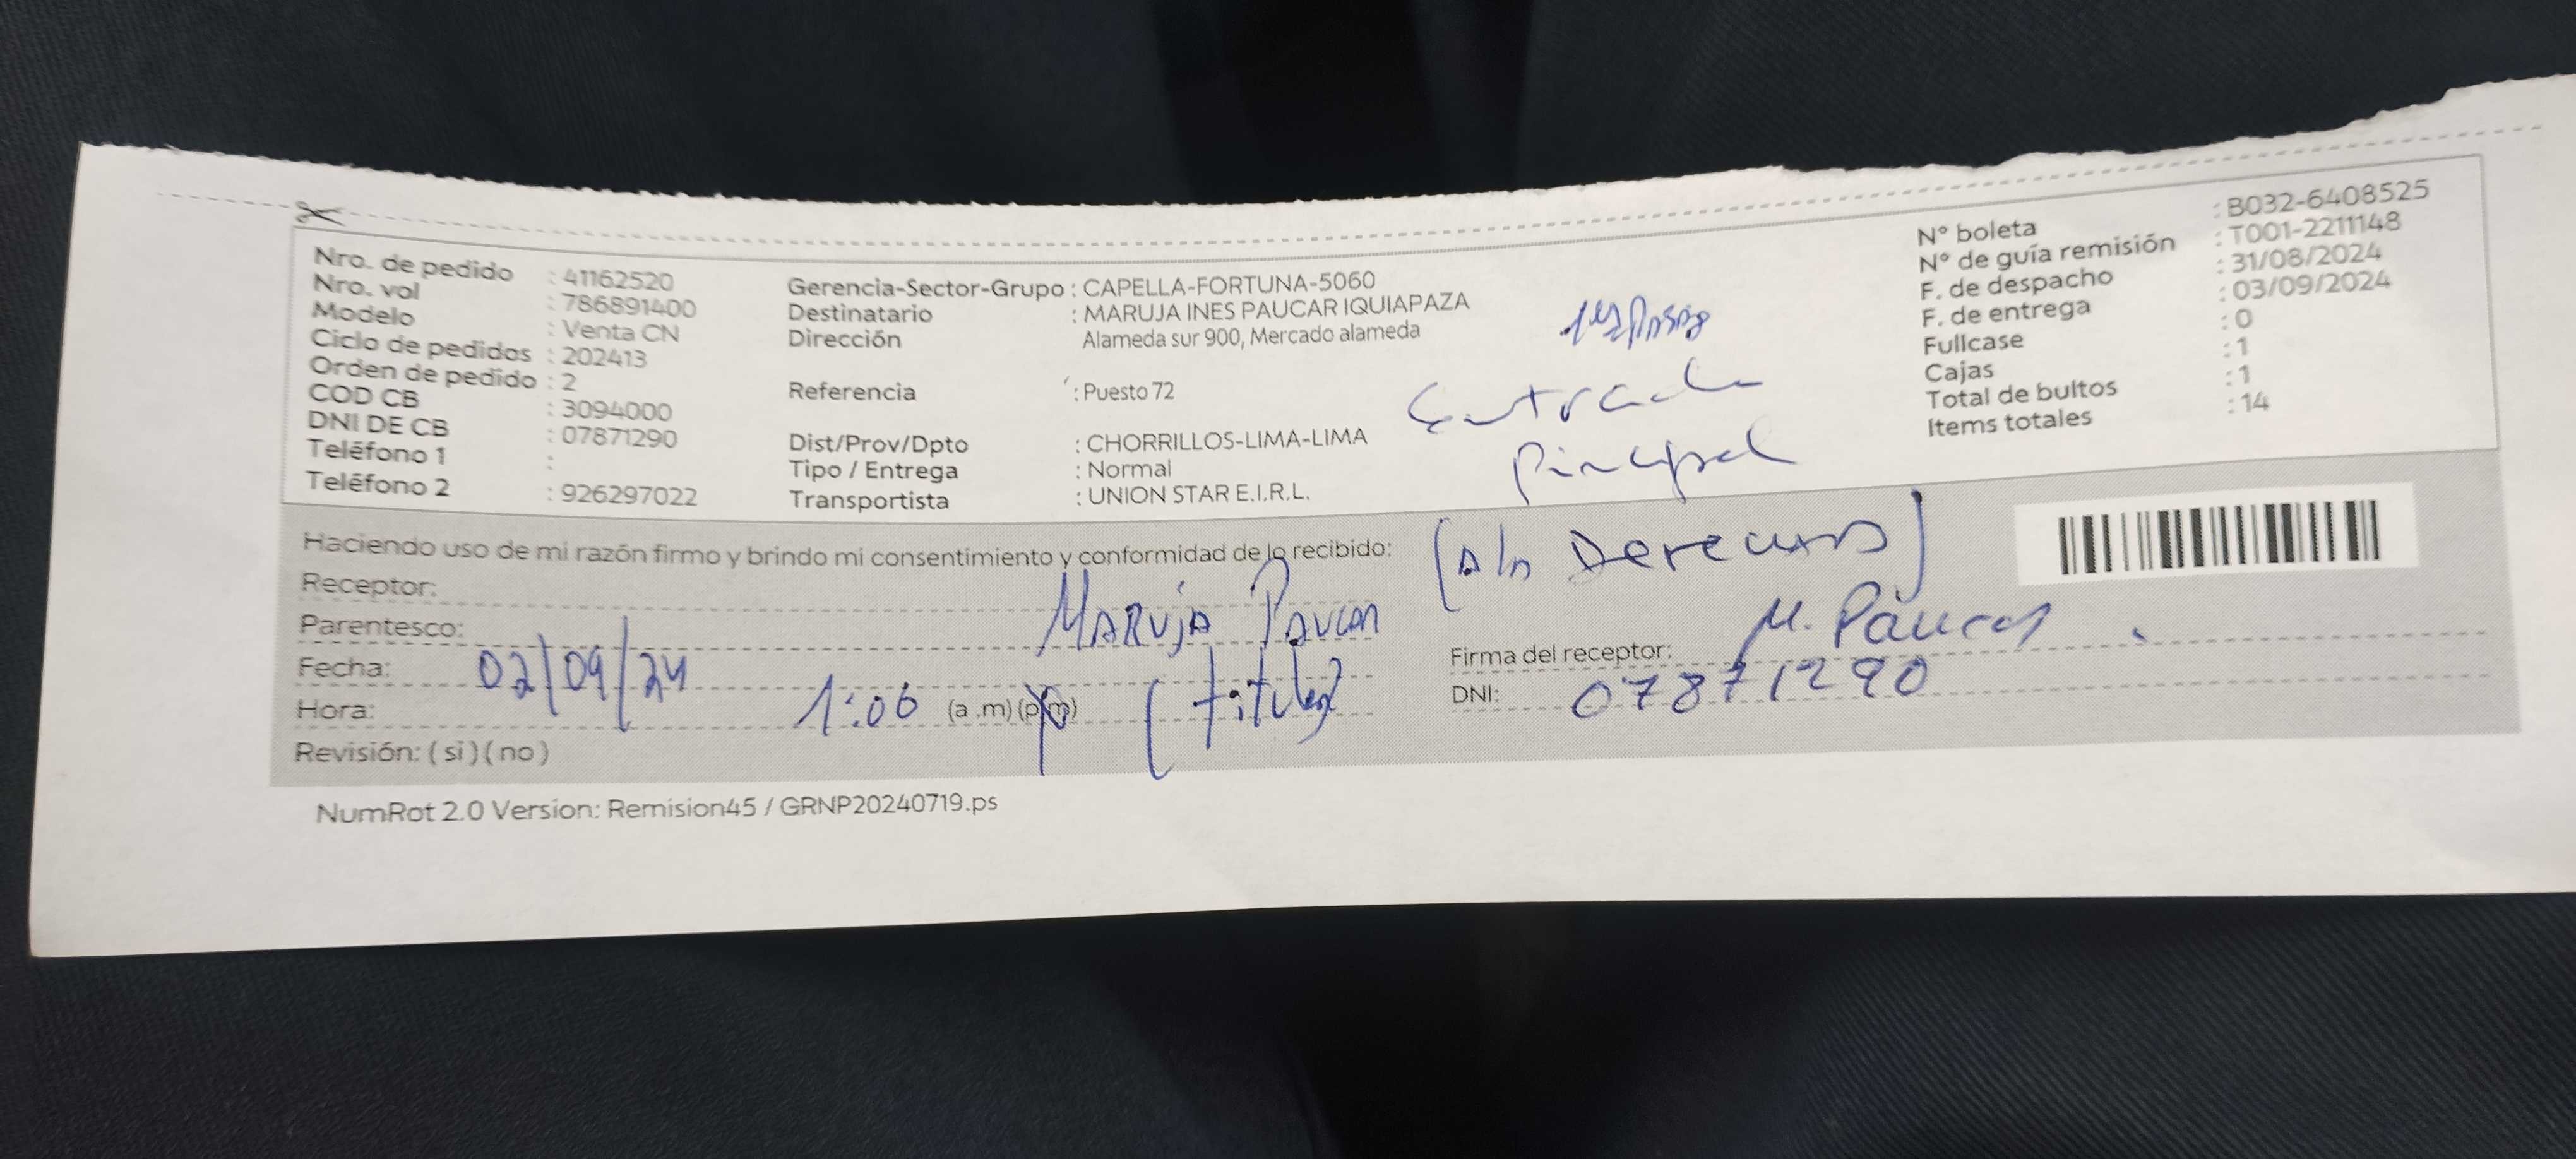 Nro. de pedido : 41162520
Nro. vol : 786891400
Modelo : Venta CN
Ciclo de pedidos : 202413
Orden de pedido : 2
COD CB : 3094000
DNI DE CB : 07871290
Teléfono 1 :
Teléfono 2 : 926297022
Gerencia-Sector-Grupo : CAPELLA-FORTUNA-5060
Destinatario : MARUJA INES PAUCAR IQUIAPAZA
Dirección Alameda sur 900, Mercado alameda
Referencia : Puesto 72
Dist/Prov/Dpto : CHORRILLOS-LIMA-LIMA
Tipo / Entrega : Normal
Transportista : UNION STAR E.I.R.L.
Entrada
Pincipal
(A la Derecha)
N° boleta : B032-6408525
N° de guía remisión : T001-2211148
F. de despacho : 31/08/2024
F. de entrega : 03/09/2024
Fullcase : 0
Cajas : 1
Total de bultos : 1
Items totales : 14
Haciendo uso de mi razón firmo y brindo mi consentimiento y conformidad de lo recibido:
Receptor: Maruja Paucar
Parentesco: (titular)
Fecha: 02/09/24
Hora: 1:06 (a .m) (p.m)
Revisión: ( si ) ( no )
Firma del receptor: M. Paucar
DNI: 07871290
NumRot 2.0 Version: Remision45 / GRNP20240719.ps